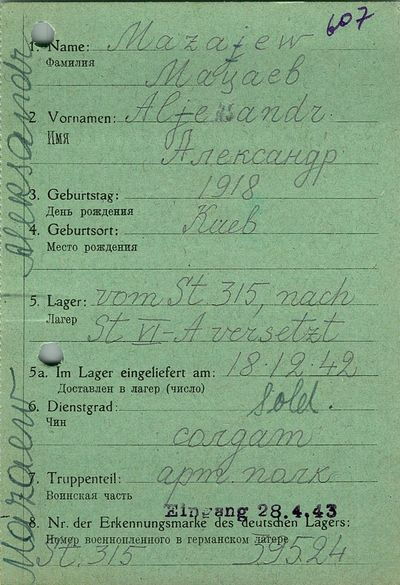 607
1. Name: Mazajew
Фамилия
Мацаев
2. Vornamen: Aljeksandr.
ИМЯ
Александр
3. Geburtstag: 1918
День рождения
4. Geburtsort: Киев
Место рождения
5. Lager: vom St. 315, nach
Лагер
St VI-A versetzt
5a. Im Lager eingeliefert am: 18.12.42
Доставлен в лагер (число)
6. Dienstgrad: Sold.
Чин
солдат
7. Truppenteil: арт. полк
Воинская часть
Eingang 28.4.43
8. Nr. der Erkennungsmarke des deutschen Lagers:
Номер военнопленного в германском лагере
St. 315 59524
Mazaew Aleksandr